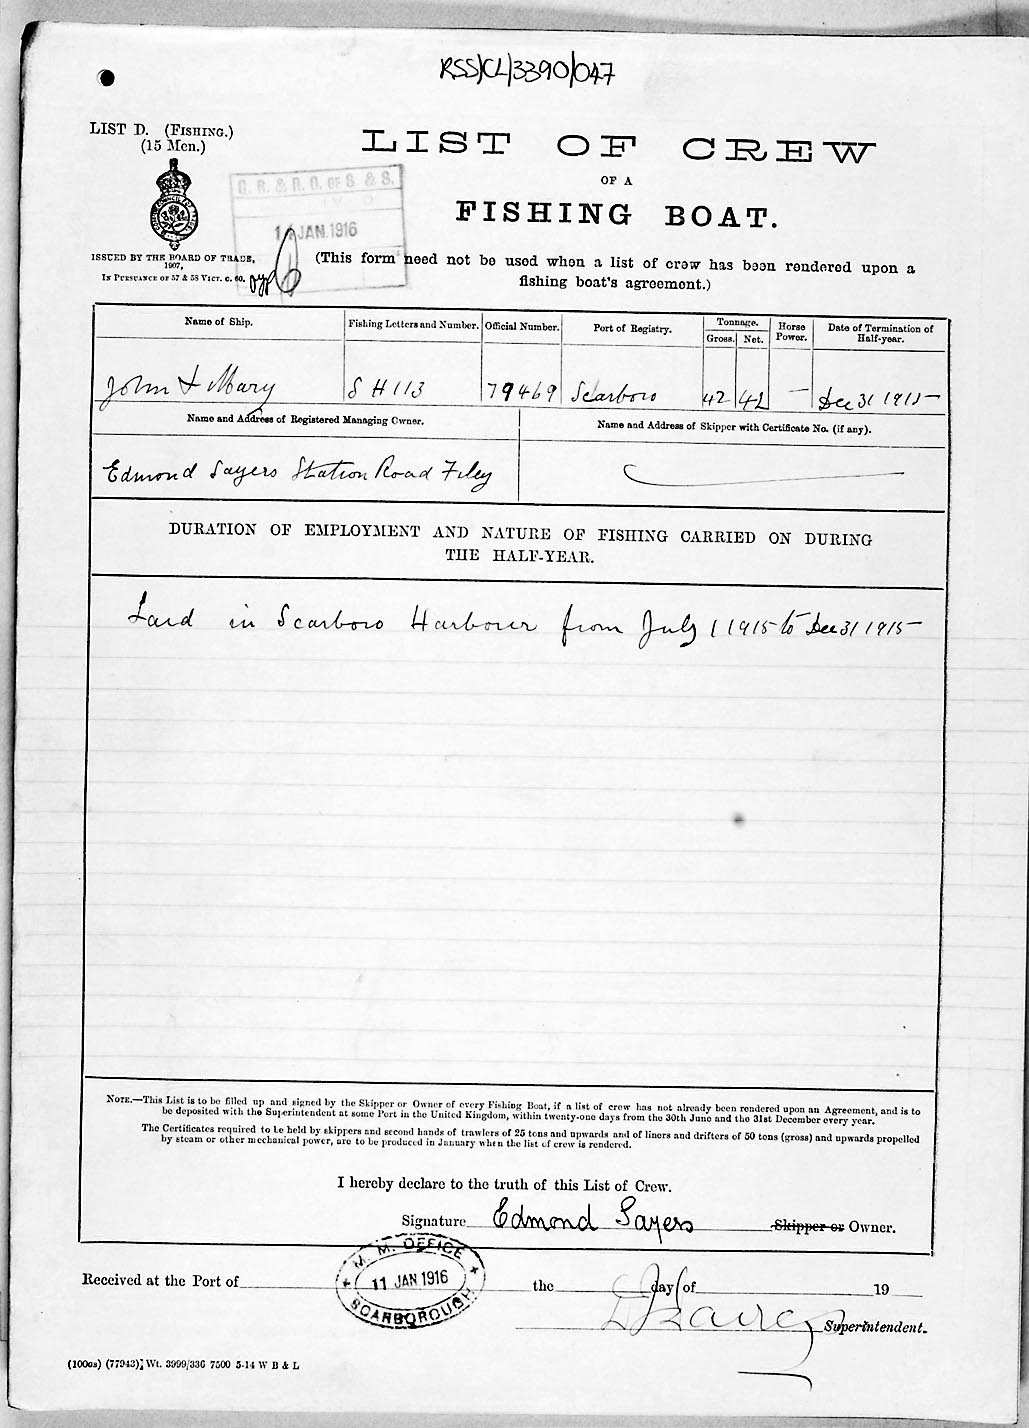 RSS/CL/3390/047
LIST D. (FISHING.)
(15 Men.)
LIST OF CREW
OF A
FISHING BOAT.
G. R. & R. O. OF S. & S.
JAN. 1916
ISSUED BY THE BOARD OF TRADE,
1907,
IN PURSUANCE OF 57 & 58 VICT. C. 60.
(This form need not be used when a list of crew has been rendered upon a
fishing boat's agreement.)
Name of Ship.
Fishing Letters and Number.
Official Number.
Port of Registry.
Tonnage.
Gross.
Net.
Horse
Power.
Date of Termination of
Half-year.
John & Mary
S H 113
79469
Scarboro
42
42
—
Dec 31 1915
Name and Address of Registered Managing Owner.
Name and Address of Skipper with Certificate No. (if any).
Edmond Sayers Station Road Filey
DURATION OF EMPLOYMENT AND NATURE OF FISHING CARRIED ON DURING
THE HALF-YEAR.
Laid in Scarboro Harbour from July 1 1915 to Dec 31 1915
NOTE.—This List is to be filled up and signed by the Skipper or Owner of every Fishing Boat, if a list of crew has not already been rendered upon an Agreement, and is to
be deposited with the Superintendent at some Port in the United Kingdom, within twenty-one days from the 30th June and the 31st December every year.
The Certificates required to be held by skippers and second hands of trawlers of 25 tons and upwards and of liners and drifters of 50 tons (gross) and upwards propelled
by steam or other mechanical power, are to be produced in January when the list of crew is rendered.
I hereby declare to the truth of this List of Crew.
Signature Edmond Sayers Skipper or Owner.
M. M. OFFICE
11 JAN 1916
SCARBOROUGH
Received at the Port of the day of 19
Superintendent.
(100os) (77943) Wt. 3999/336 7500 5-14 W B & L